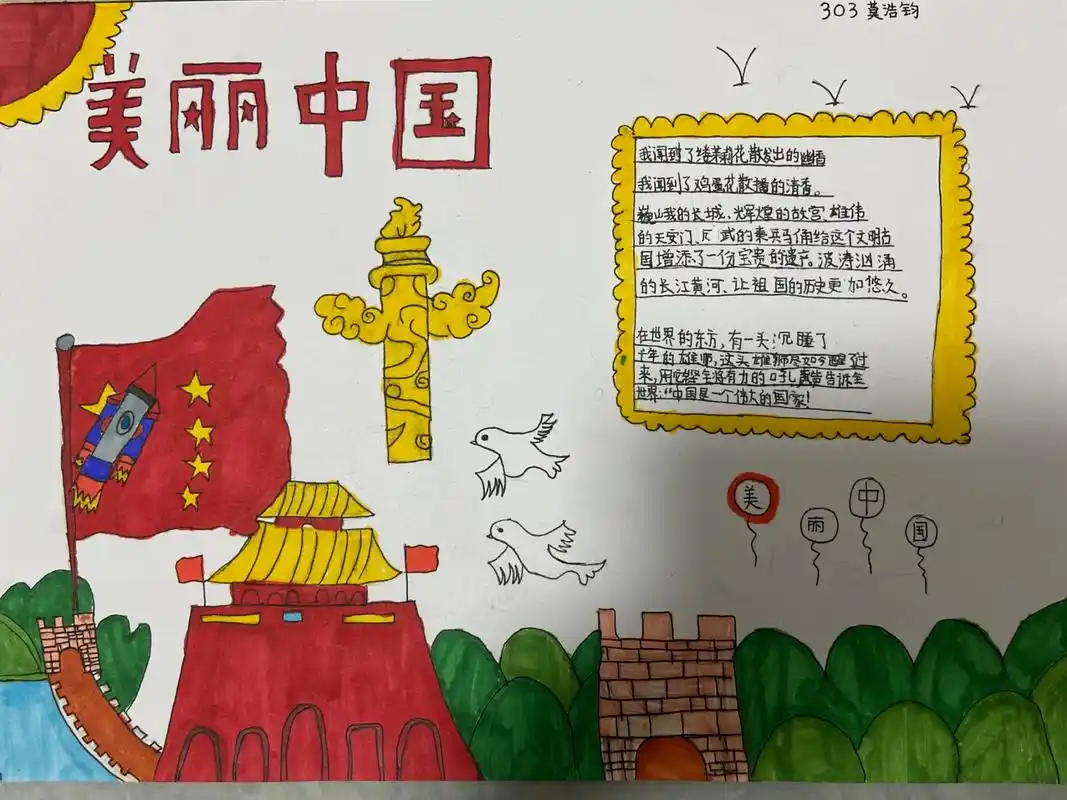 303 莫浩钧
美丽中国
我闻到了缕茉莉花散发出的幽香
我闻到了鸡蛋花散播的清香。
巍峨的长城、辉煌的故宫、雄伟
的天安门、武的秦兵马俑给这个文明古
国增添了一份宝贵的遗产。波涛汹涌
的长江黄河、让祖国的历史更加悠久。
在世界的东方，有一头沉睡了
千年的雄狮，这头雄狮尽如今醒了过
来，用它将有力的口孔告诉全
世界："中国是一个伟大的国家！
美
丽
中
国